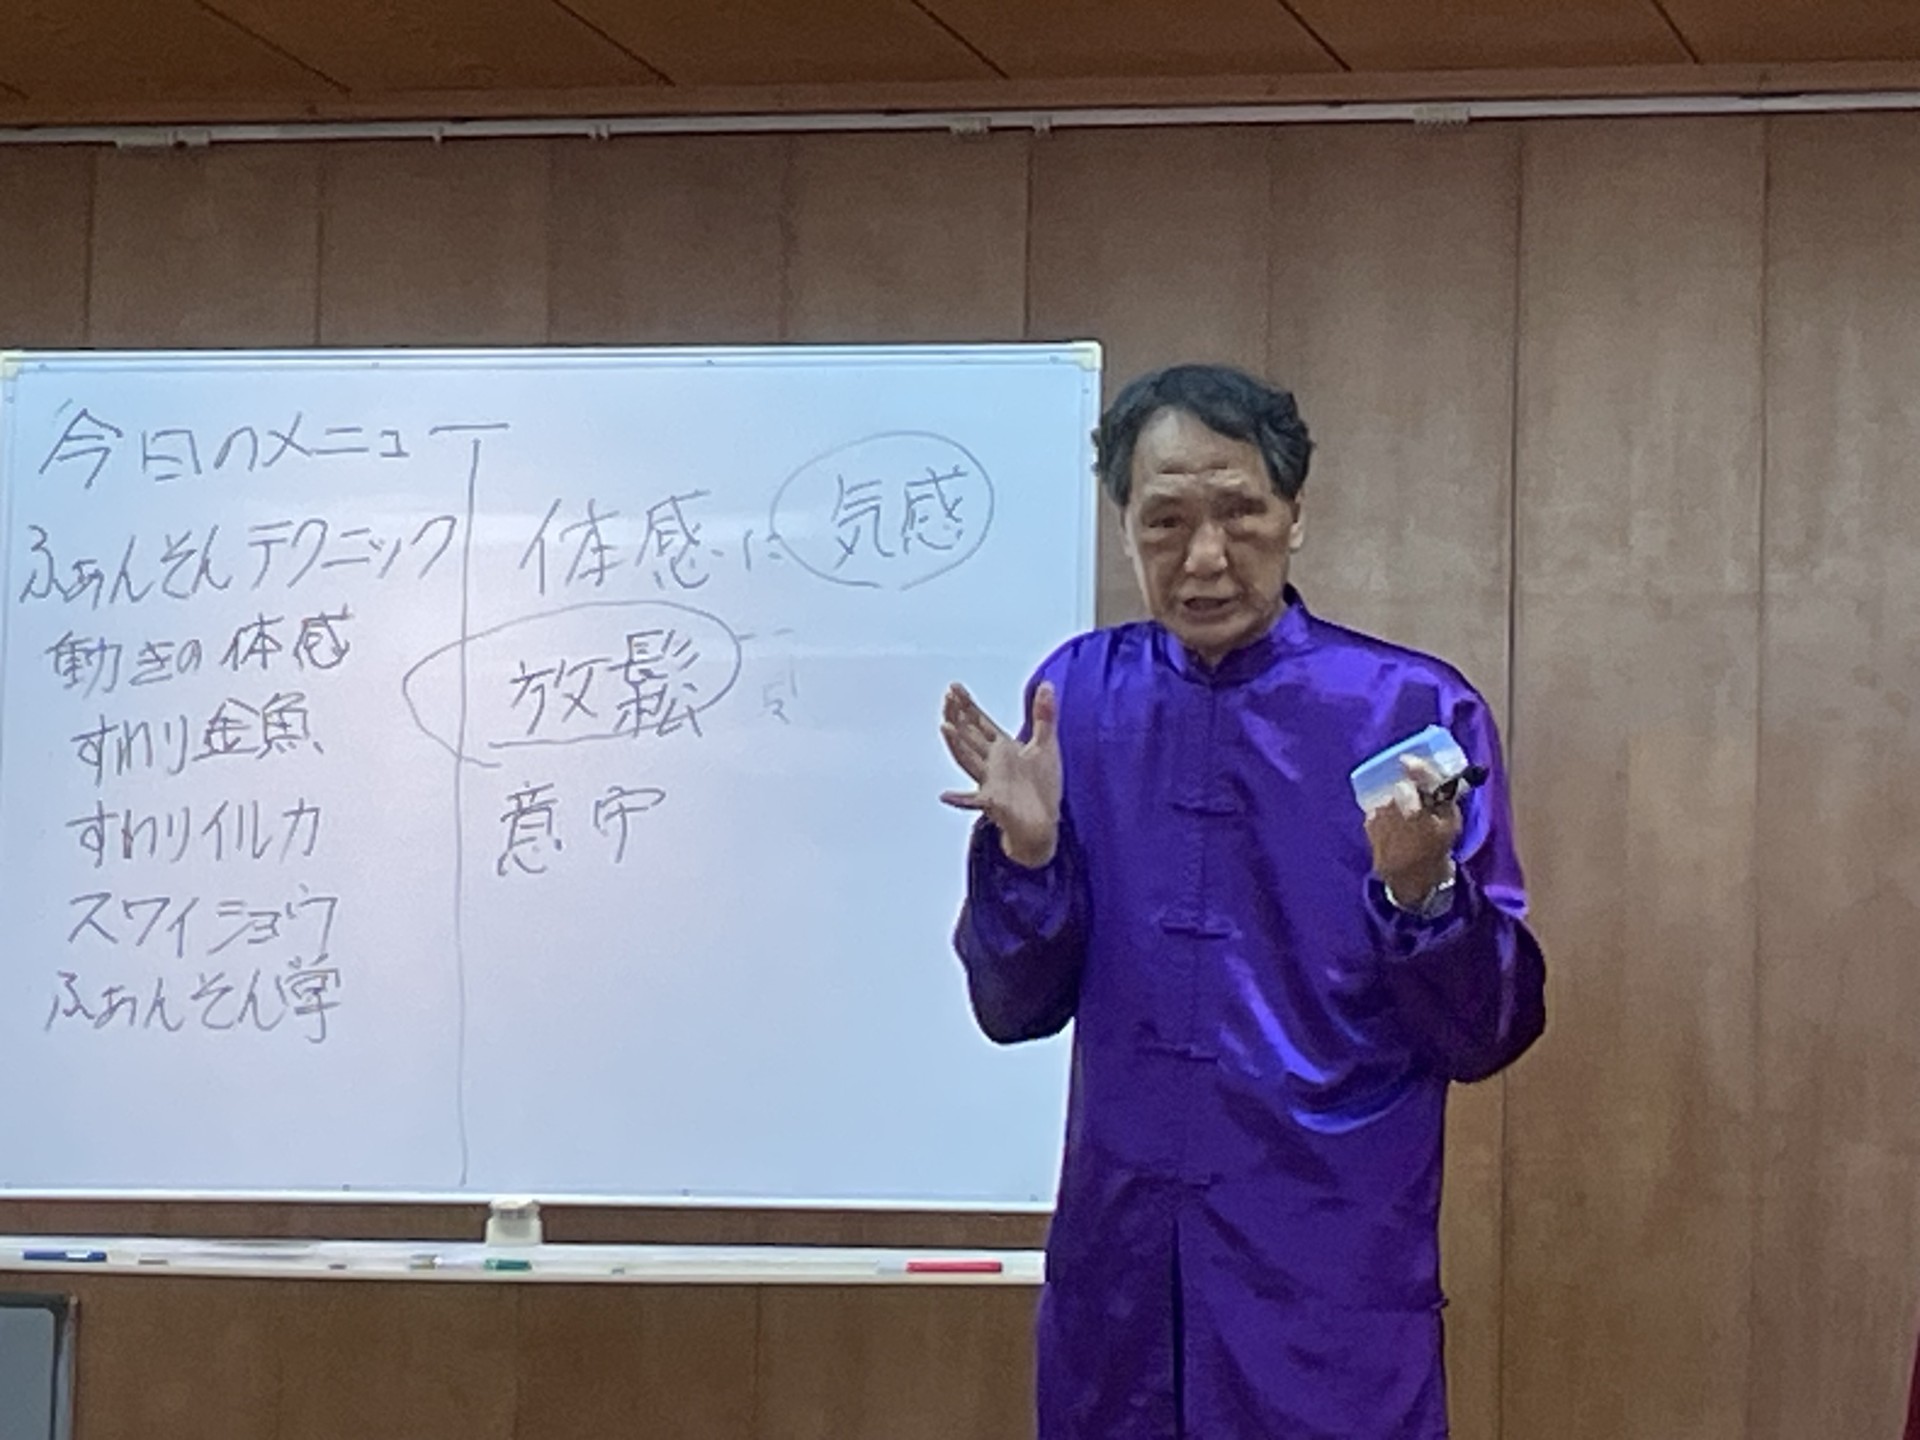 今日のメニュー
ふぁんそんテクニック
動きの体感
すわり金魚
すわりイルカ
スワイショウ
ふぁんそん学
体感は気感
放鬆
意守